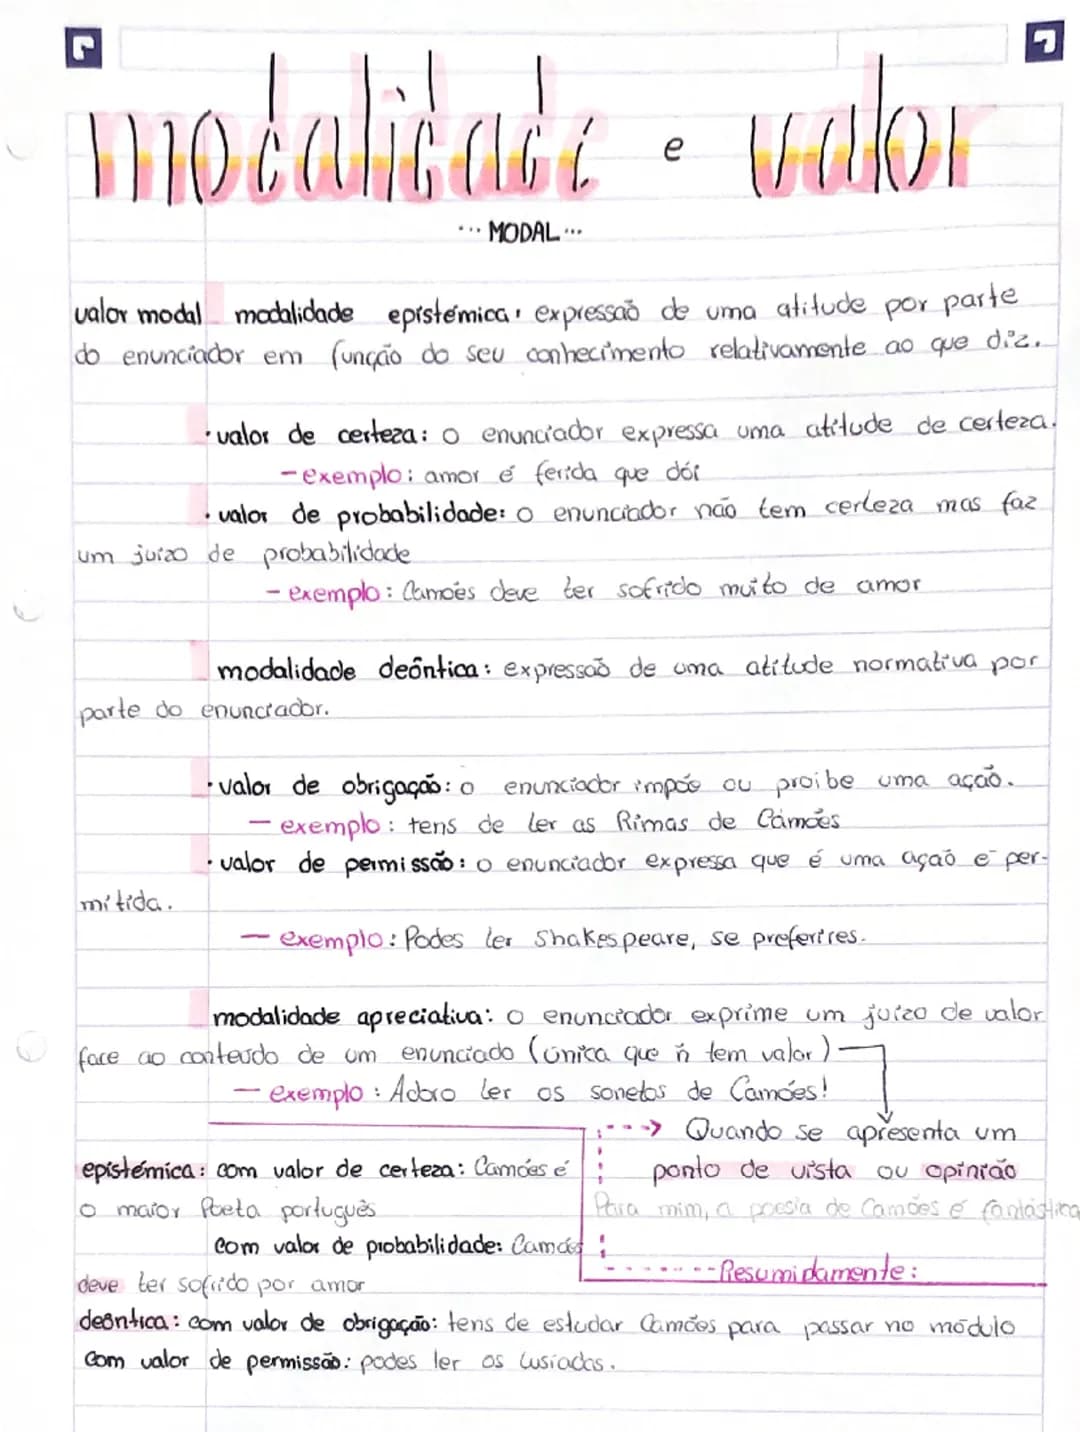 modalidade e valor
... MODAL ...
valor modal modalidade epistémica: expressão de uma atitude por parte
do enunciador em função do seu conhecimento relativamente ao que diz.
• valor de certeza: o enunciador expressa uma atitude de certeza.
- exemplo: amor é ferida que dói
• valor de probabilidade: o enunciador não tem certeza mas faz
um juízo de probabilidade
- exemplo: Camões deve ter sofrido muito de amor
modalidade deôntica: expressão de uma atitude normativa por
parte do enunciador.
• valor de obrigação: o enunciador impõe ou proibe uma ação.
- exemplo: tens de ler as Rimas de Camões
• valor de permissão: o enunciador expressa que é uma ação é per-
mitida.
- exemplo: Podes ler Shakespeare, se preferires.
modalidade apreciativa: o enunciador exprime um juízo de valor
face ao conteúdo de um enunciado (única que ñ tem valor)
- exemplo: Adoro ler os sonetos de Camões!
Quando se apresenta um
ponto de vista ou opinião
Para mim, a poesia de Camões é fantástica
Resumidamente:
epistémica: com valor de certeza: Camões é
o maior Poeta português
com valor de probabilidade: Camões
deve ter sofrido por amor
deôntica: com valor de obrigação: tens de estudar Camões para passar no módulo
com valor de permissão: podes ler os Lusíadas.